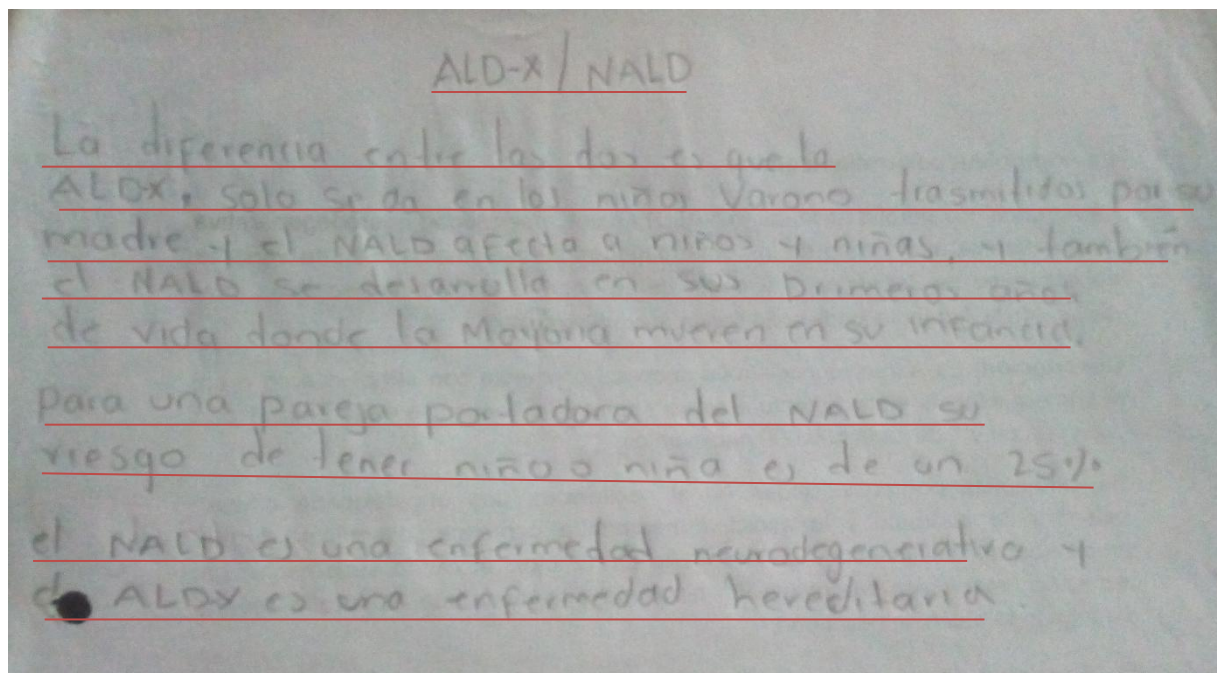 ALD-X / NALD
La diferencia entre las dos es que la
ALDX, solo se da en los niños Varono trasmitidas por su
madre y el NALD afecta a niños y niñas, y también
el NALD se desarrolla en sus primeros años
de vida donde la Mayoria mueren en su infancia.
Para una pareja portadora del NALD su
riesgo de tener niño o niña es de un 25%
el NALD es una enfermedad neurodegenerativa y
ALDX es una enfermedad hereditaria.